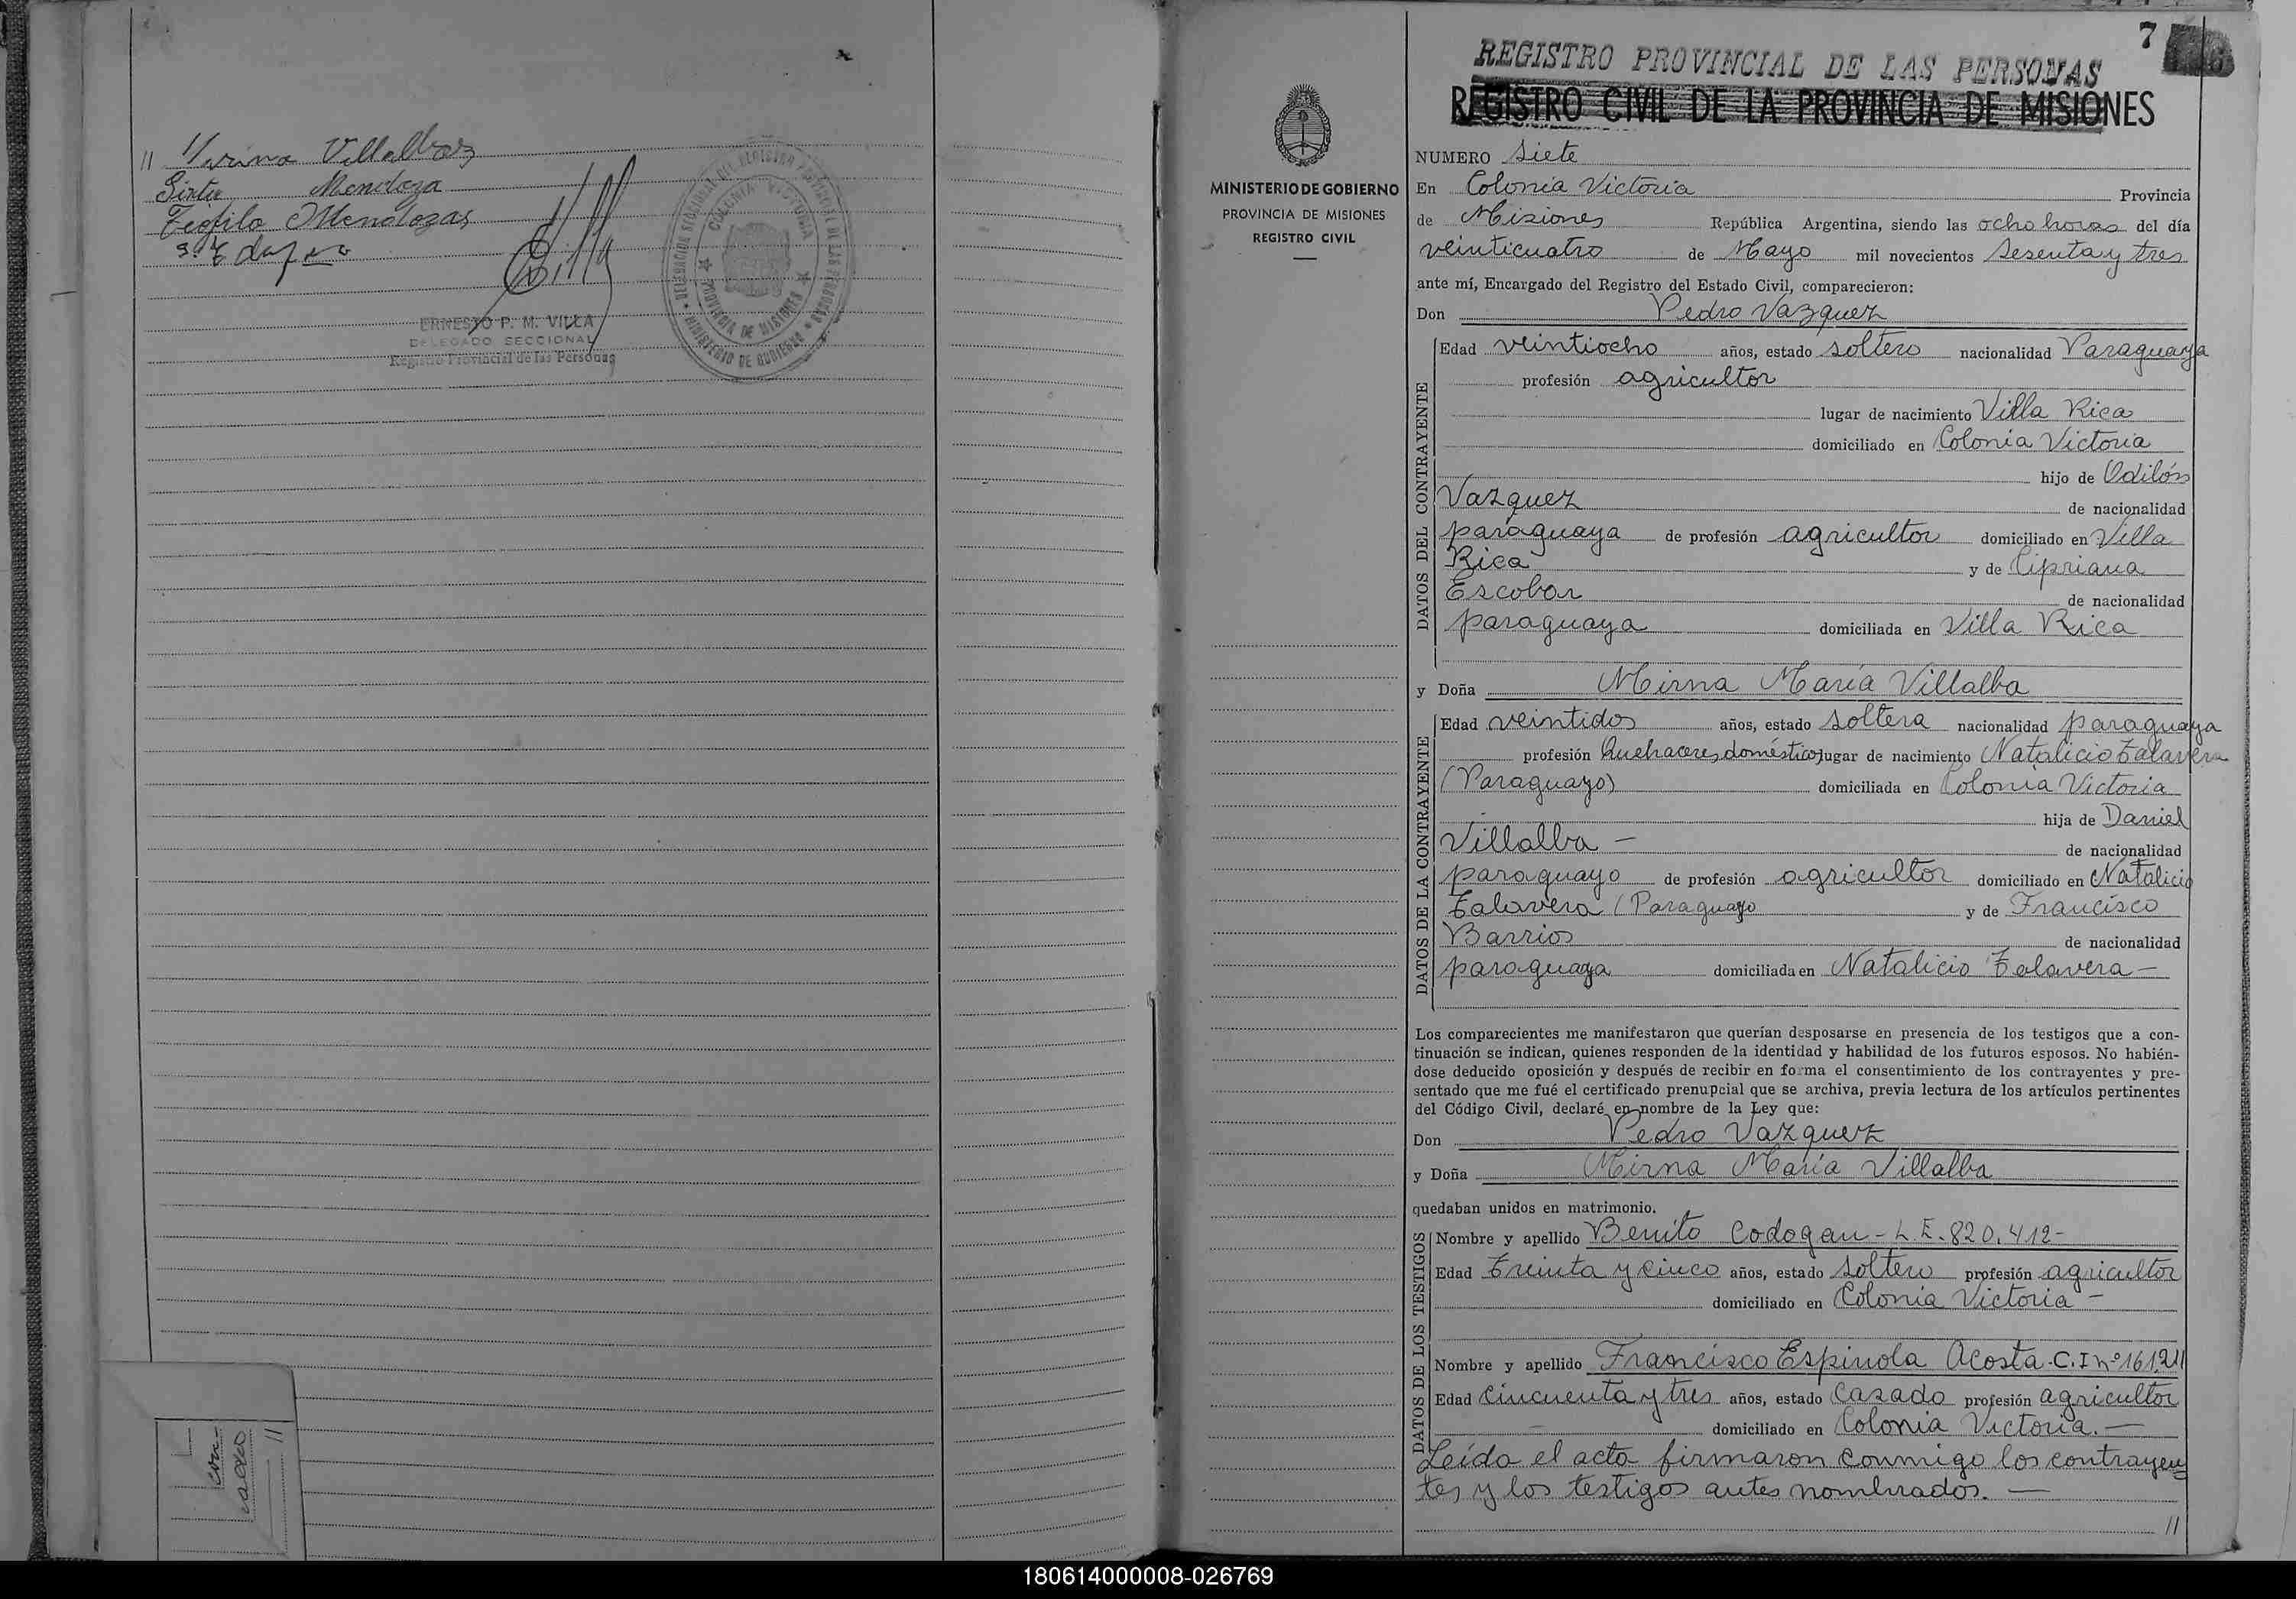 // Villalbaz
Mendoza
Teofilo Mendozas
ERNESTO P. M. VILLA
DELEGADO SECCIONAL
Registro Provincial de las Personas
COLONIA VICTORIA
PROVINCIA DE MISIONES
MINISTERIO DE GOBIERNO
//
7
REGISTRO PROVINCIAL DE LAS PERSONAS
REGISTRO CIVIL DE LA PROVINCIA DE MISIONES
MINISTERIO DE GOBIERNO
PROVINCIA DE MISIONES
REGISTRO CIVIL
NUMERO Siete
En Colonia Victoria Provincia
de Misiones República Argentina, siendo las ocho horas del día
veinticuatro de Mayo mil novecientos Sesenta y tres
ante mí, Encargado del Registro del Estado Civil, comparecieron:
Don Pedro Vazquez
DATOS DEL CONTRAYENTE
Edad veintiocho años, estado soltero nacionalidad Paraguaya
profesión agricultor
lugar de nacimiento Villa Rica
domiciliado en Colonia Victoria
hijo de Odilón
Vazquez de nacionalidad
paraguaya de profesión agricultor domiciliado en Villa
Rica y de Cipriana
Escobar de nacionalidad
paraguaya domiciliada en Villa Rica
y Doña Mirna María Villalba
DATOS DE LA CONTRAYENTE
Edad veintidos años, estado soltera nacionalidad paraguaya
profesión Quehaceres domésticos lugar de nacimiento Natalicio Talavera
(Paraguayo) domiciliada en Colonia Victoria
hija de Daniel
Villalba - de nacionalidad
paraguayo de profesión agricultor domiciliado en Natalicio
Talavera (Paraguayo y de Francisco
Barrios de nacionalidad
paraguaya domiciliada en Natalicio Talavera -
Los comparecientes me manifestaron que querían desposarse en presencia de los testigos que a con-
tinuación se indican, quienes responden de la identidad y habilidad de los futuros esposos. No habién-
dose deducido oposición y después de recibir en forma el consentimiento de los contrayentes y pre-
sentado que me fué el certificado prenupcial que se archiva, previa lectura de los artículos pertinentes
del Código Civil, declaré en nombre de la Ley que:
Don Pedro Vazquez
y Doña Mirna María Villalba
quedaban unidos en matrimonio.
DATOS DE LOS TESTIGOS
Nombre y apellido Benito Codogan - L E. 820.412-
Edad Treinta y cinco años, estado soltero profesión agricultor
domiciliado en Colonia Victoria -
Nombre y apellido Francisco Espinola Acosta - C. I nº 161.211
Edad cincuenta y tres años, estado casado profesión agricultor
domiciliado en Colonia Victoria. -
Leída el acta firmaron conmigo los contrayen
tes y los testigos antes nombrados. -
//
180614000008-026769